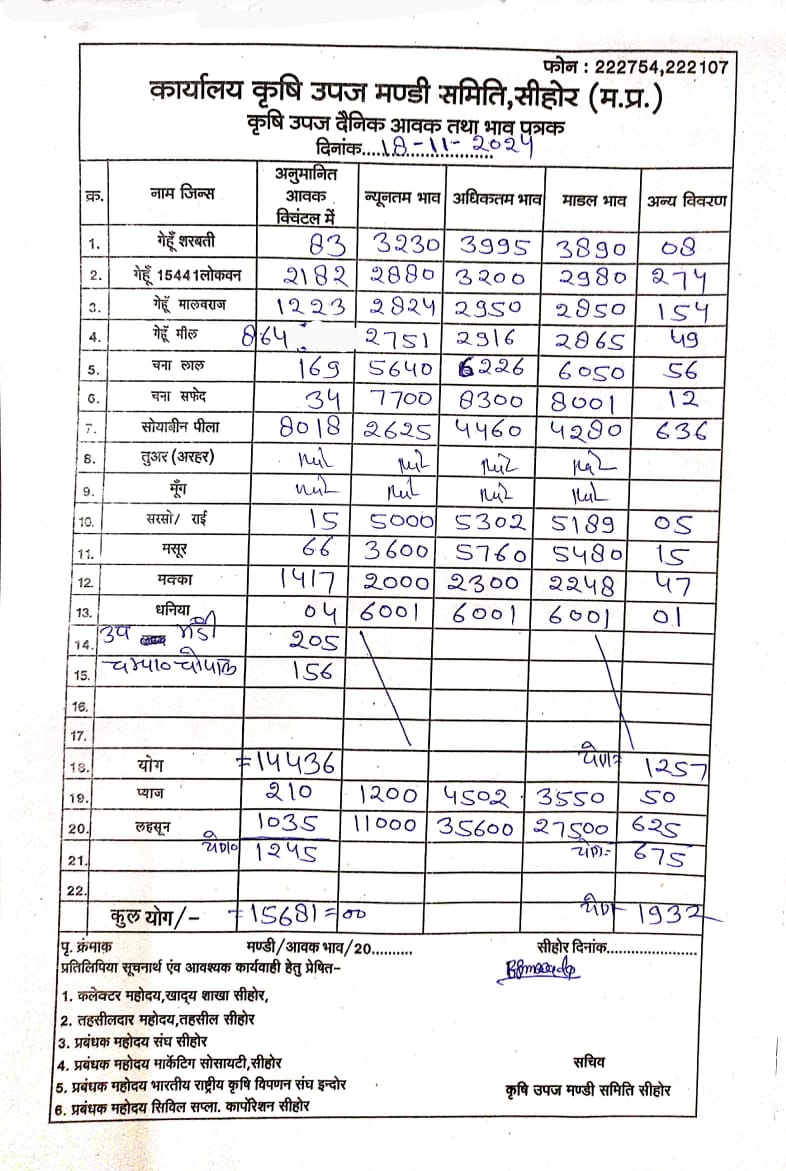 फोन : 222754,222107
कार्यालय कृषि उपज मण्डी समिति,सीहोर (म.प्र.)
कृषि उपज दैनिक आवक तथा भाव पत्रक
दिनांक....18-11-2024
क्र. नाम जिन्स अनुमानित आवक क्विंटल में न्यूनतम भाव अधिकतम भाव माडल भाव अन्य विवरण
1. गेहूँ शरबती 83 3230 3995 3890 08
2. गेहूँ 15441लोकवन 2182 2880 3200 2980 274
3. गेहूँ मालवराज 1223 2824 2950 2850 154
4. गेहूँ मील 864 2751 2916 2865 49
5. चना लाल 169 5640 6226 6050 56
6. चना सफेद 34 7700 8300 8001 12
7. सोयाबीन पीला 8018 2625 4460 4280 636
8. तुअर (अरहर) Nil Nil Nil Nil
9. मूँग Nil Nil Nil Nil
10. सरसो/ राई 15 5000 5302 5189 05
11. मसूर 66 3600 5760 5480 15
12. मक्का 1417 2000 2300 2248 47
13. धनिया 04 6001 6001 6001 01
14. उप मंडी 205
15. 156
16.
17.
18. योग =14436 योग= 1257
19. प्याज 210 1200 4502 3550 50
20. लहसून 1035 11000 35600 27500 625
21. योग 1245 योग= 675
22.
कुल योग/- =15681=00 योग 1932
पृ. क्रंमाक़ मण्डी/आवक भाव/20.......... सीहोर दिनांक......................
प्रतिलिपिया सूचनार्थ एंव आवश्यक कार्यवाही हेतु प्रेषित–
1. कलेक्टर महोदय,खाद्य शाखा सीहोर,
2. तहसीलदार महोदय,तहसील सीहोर
3. प्रबंधक महोदय संघ सीहोर
4. प्रबंधक महोदय मार्केटिग सोसायटी,सीहोर सचिव
5. प्रबंधक महोदय भारतीय राष्ट्रीय कृषि विपणन संघ इन्दोर कृषि उपज मण्डी समिति सीहोर
6. प्रबंधक महोदय सिविल सप्ला. कार्पोरेशन सीहोर